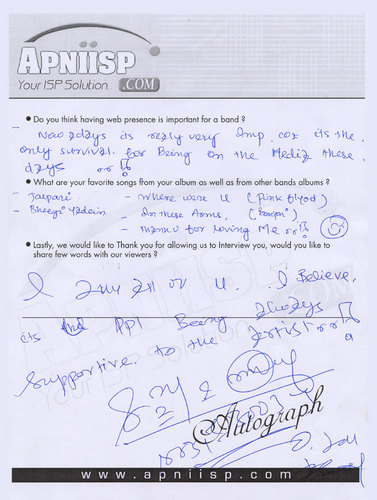 APNIISP
Your ISP Solution .COM
● Do you think having web presence is important for a band ?
- Now adays its really very Imp. coz its the
only survival for Being on the Media these
days
● What are your favorite songs from your album as well as from other bands albums ?
- Jaipari - Where were U (Pink Floyd)
- Bheegi Yadein - In these Arms, (Bonjovi)
- Thank U for Loving Me
● Lastly, we would like to Thank you for allowing us to Interview you, would you like to
share few words with our viewers ?
I all U. I Believe,
its ppl Being always
supportive to the Artist
Autograph
www.apniisp.com